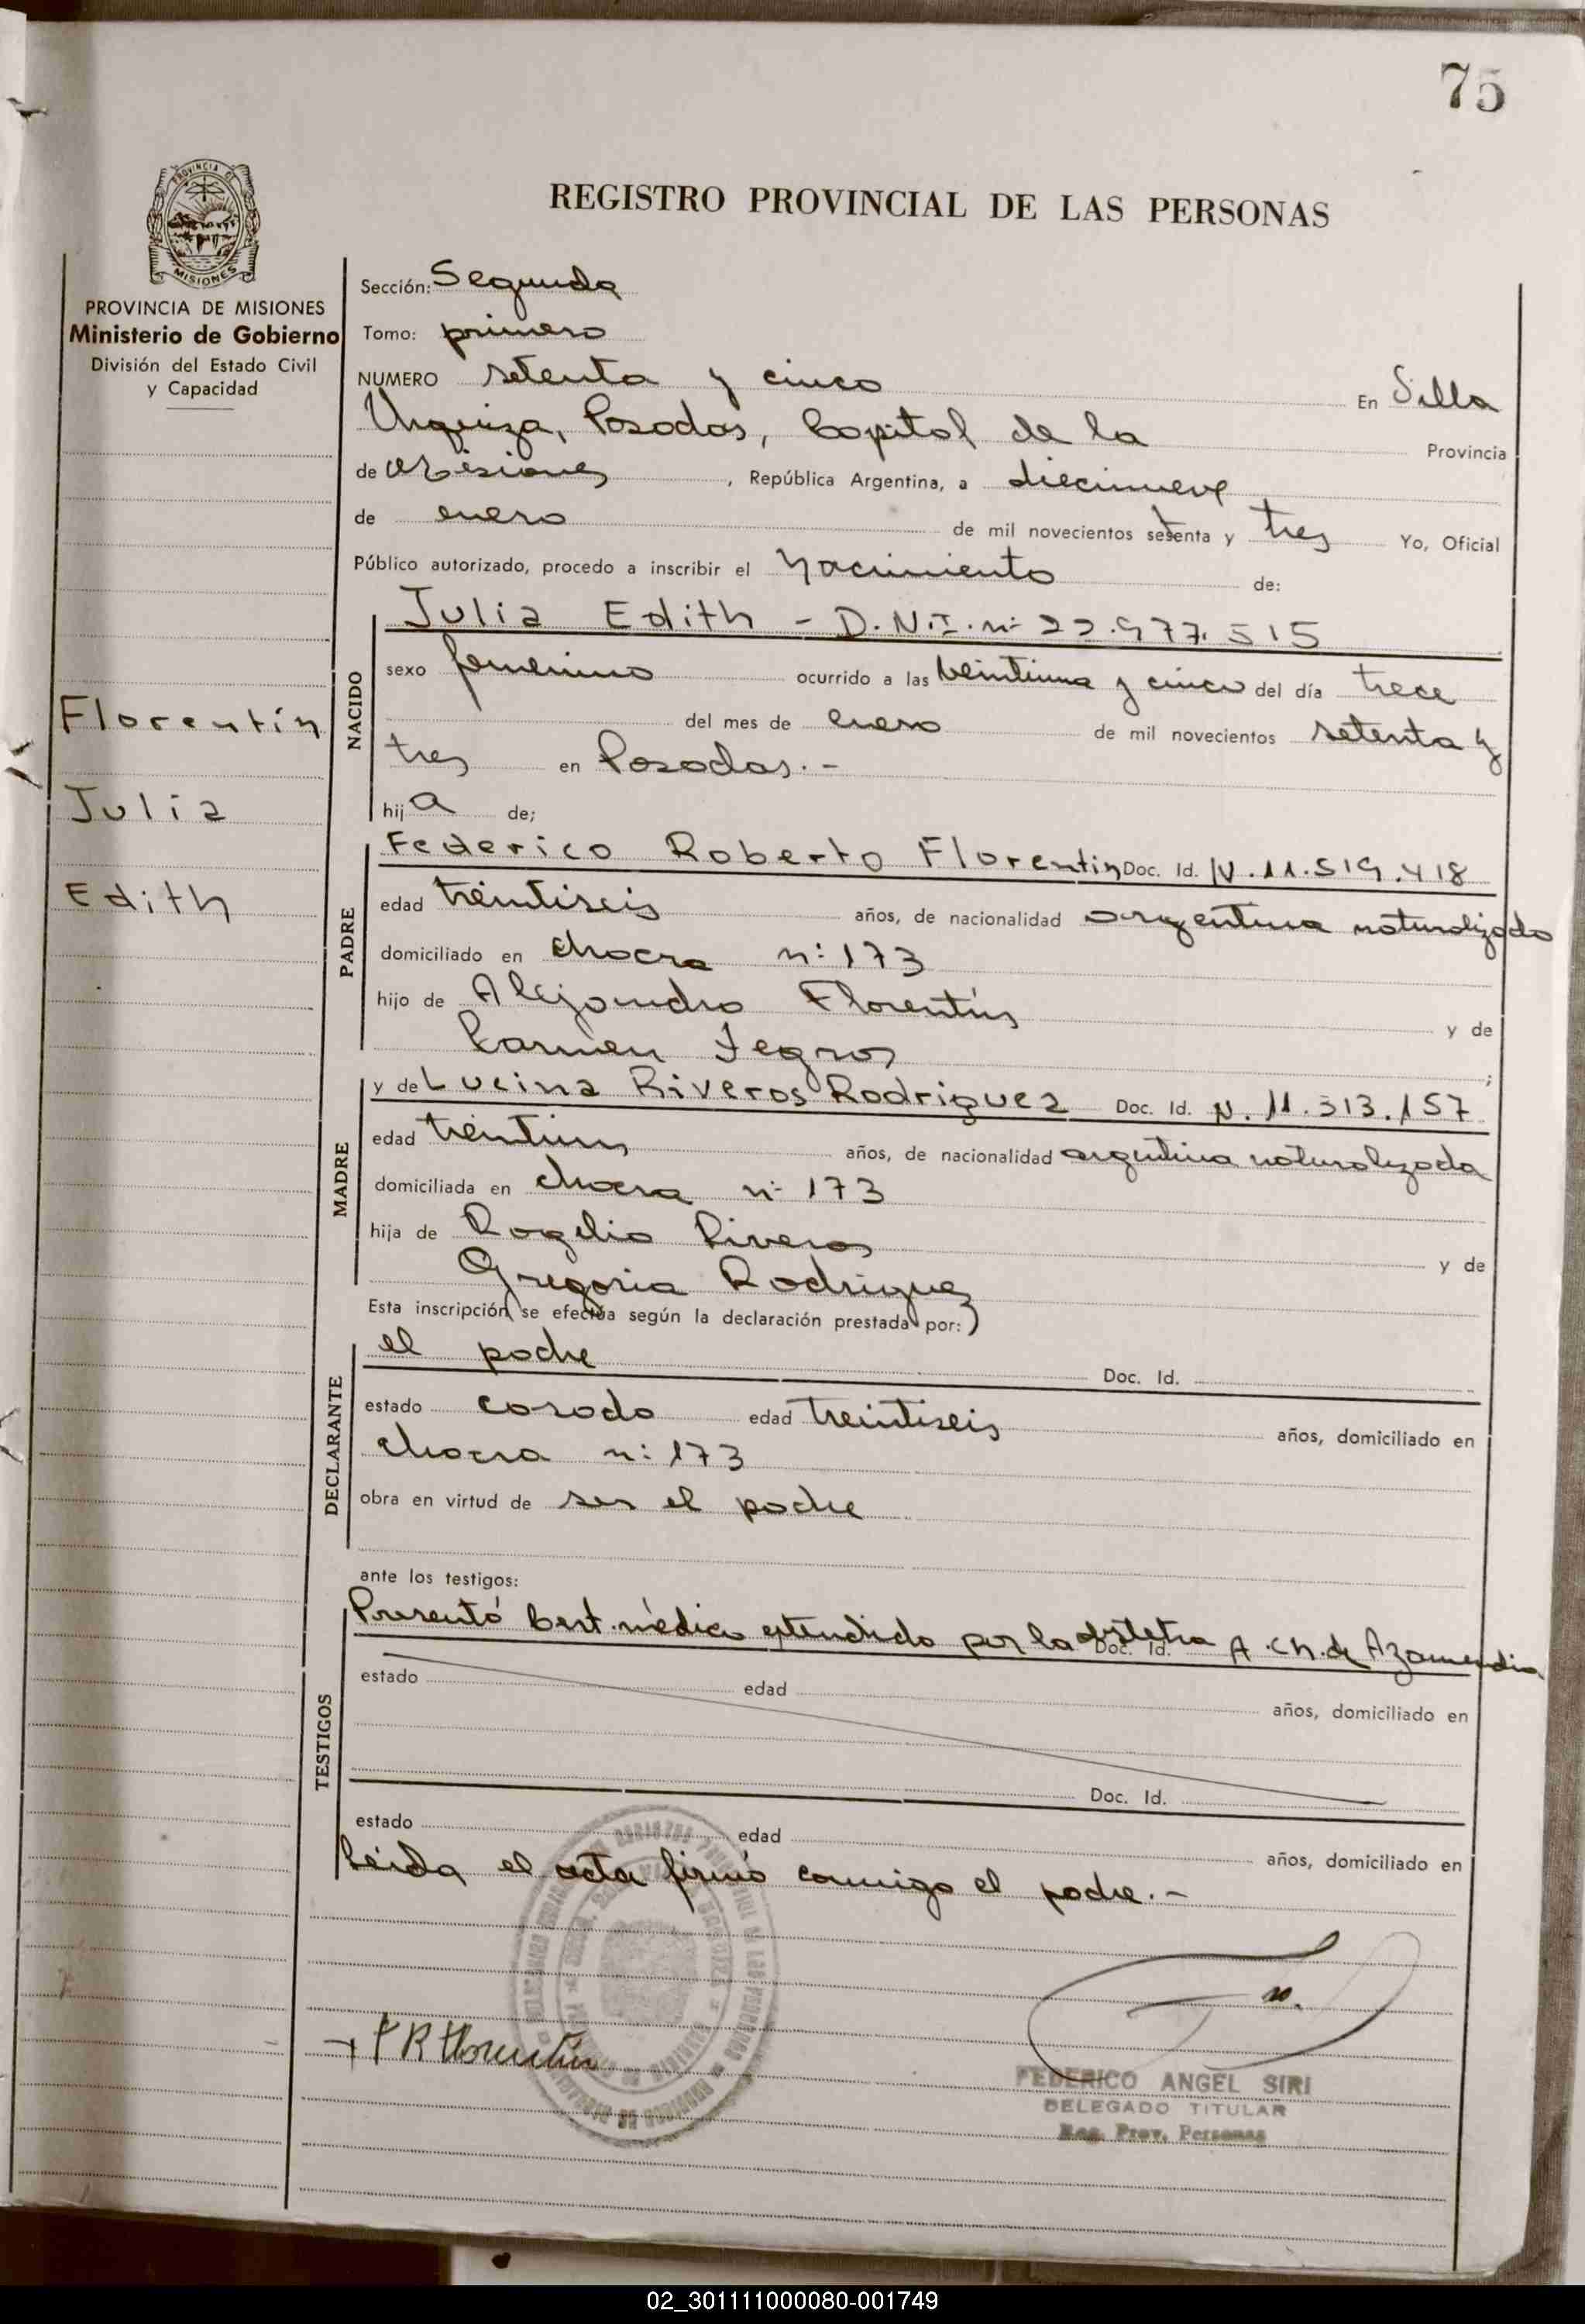 75
REGISTRO PROVINCIAL DE LAS PERSONAS
PROVINCIA DE MISIONES
Ministerio de Gobierno
División del Estado Civil
y Capacidad
Florentín
Julia
Edith
Sección: Segunda
Tomo: primero
NUMERO setenta y cinco En Villa
Urquiza, Posadas, Capital de la Provincia
de Misiones, República Argentina, a diecinueve
de enero de mil novecientos setenta y tres Yo, Oficial
Público autorizado, procedo a inscribir el Nacimiento de:
NACIDO
Julia Edith - D.N.I. nº 22.977.515
sexo femenino ocurrido a las veintiuna y cinco del día trece
del mes de enero de mil novecientos setenta y
tres en Posadas.-
hija de;
PADRE
Federico Roberto Florentin Doc. Id. Nº.11.519.418
edad treintiseis años, de nacionalidad argentina naturalizado
domiciliado en chacra nº 173
hijo de Alejandro Florentín y de
Carmen Fegros ;
MADRE
y de Lucina Riveros Rodriguez Doc. Id. N. 11.313.157
edad treintiun años, de nacionalidad argentina naturalizada
domiciliada en chacra nº 173
hija de Rogelio Riveros y de
Gregoria Rodriguez
Esta inscripción se efectúa según la declaración prestada por:
DECLARANTE
el padre Doc. Id.
estado casado edad treintiseis años, domiciliado en
chacra nº 173
obra en virtud de ser el padre
ante los testigos:
TESTIGOS
Presentó Cert. médico extendido por la obstetra Doc. Id. A. Ch. de Azamendia
estado edad años, domiciliado en
Doc. Id.
estado edad años, domiciliado en
Leída el acta firmó conmigo el padre.-
F R Florentín
FEDERICO ANGEL SIRI
DELEGADO TITULAR
Reg. Prov. Personas
02_301111000080-001749